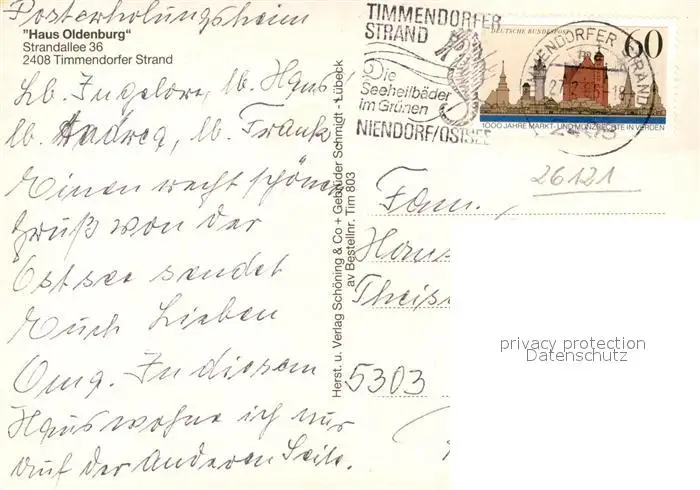 Posterholungsheim
"Haus Oldenburg"
Strandallee 36
2408 Timmendorfer Strand
Lb. Ingelore, lb. Hans
lb. Andrea, lb. Frank
Einen recht schönen
Gruß von der
Ostsee sendet
Euch Lieben
Omg. In diesem
Haus wohne ich nur
auf der anderen Seite.
Herst. u. Verlag Schöning & Co + Gebrüder Schmidt - Lübeck
av Bestellnr. Tim 803
TIMMENDORFER
STRAND
Die
Seeheilbäder
im Grünen
NIENDORF/OSTSEE
DEUTSCHE BUNDESPOST
60
1000 JAHRE MARKT- UND MÜNZRECHTE IN VERDEN
TIMMENDORFER STRAND
26121
Fam.
Hans
Theis
5303
privacy protection
Datenschutz